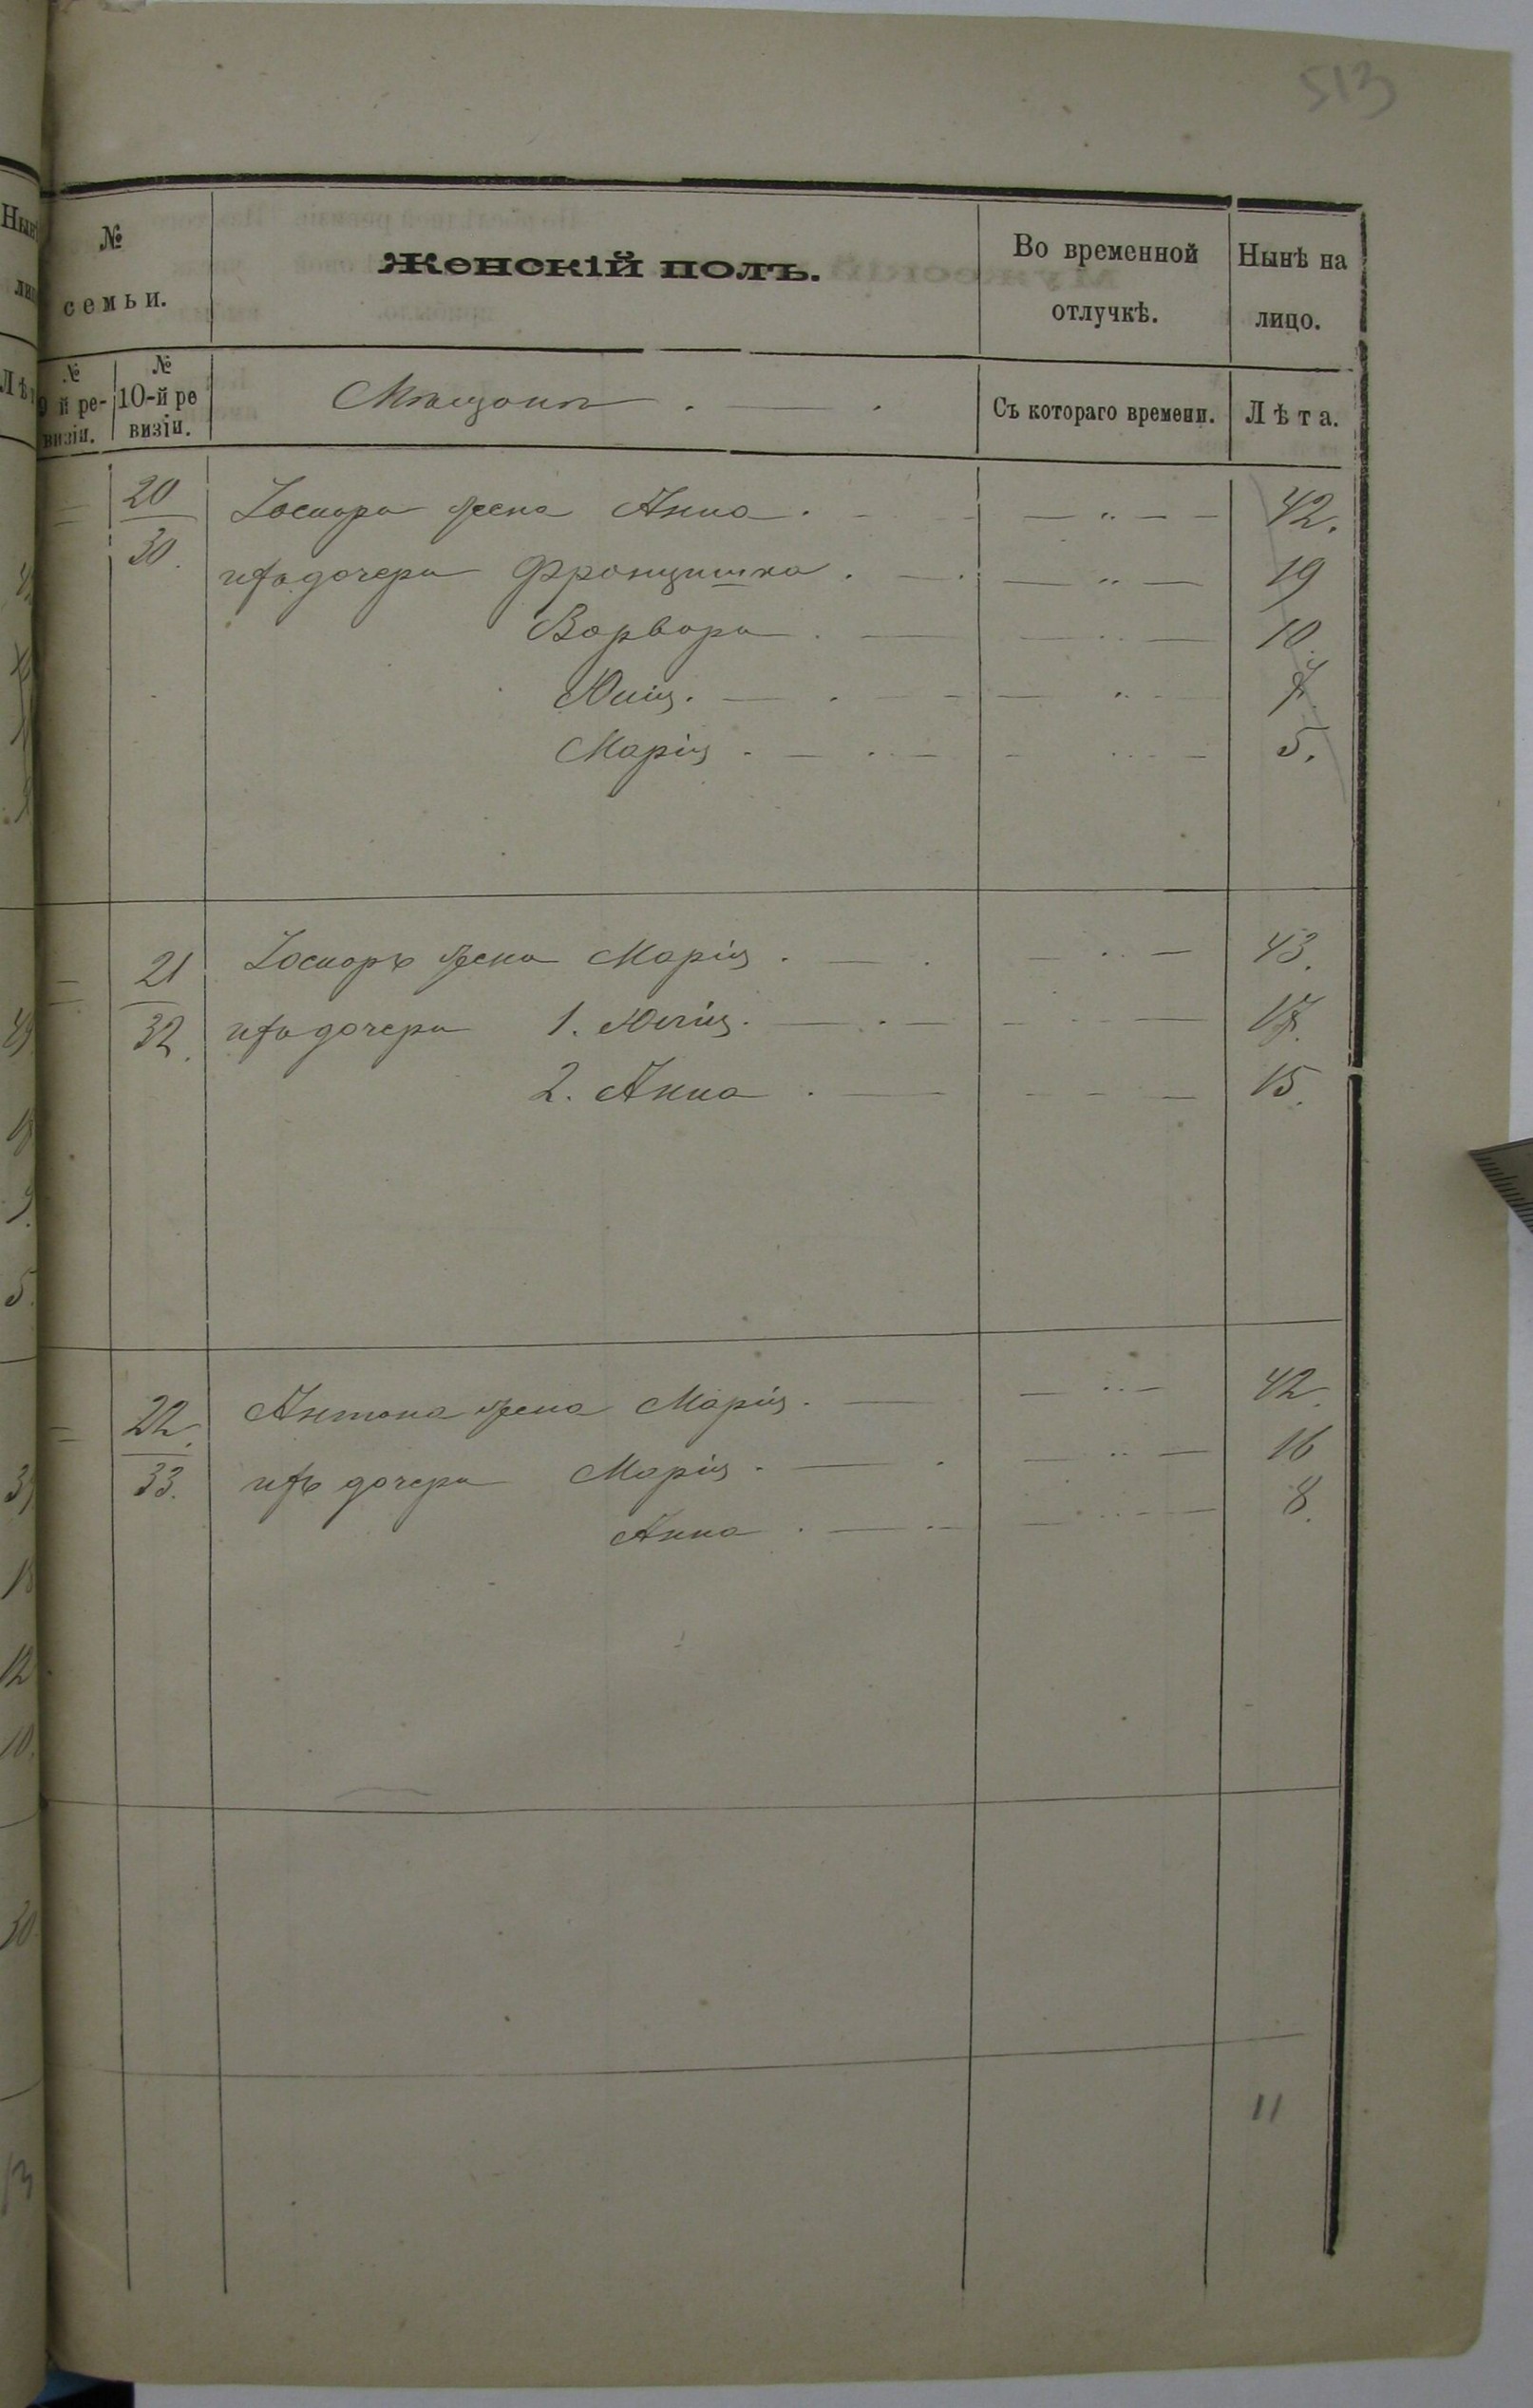 513
№ семьи.
Женскій полъ.
Во временной отлучкѣ.
Нынѣ на лицо.
№ 9 й ревизіи.
№ 10-й ревизіи.
Мѣщанъ
Съ котораго времени.
Лѣта.
20/30. жена Анна 42.
ихъ дочери Францишка 19
Варвара 10.
Юлія 7.
Марія 5.
21/32. жена Марія 43.
ихъ дочери 1. Юлія 17.
2. Анна 15.
22./33. Антона жена Марія 42.
ихъ дочери Марія 16
Анна 8.
11